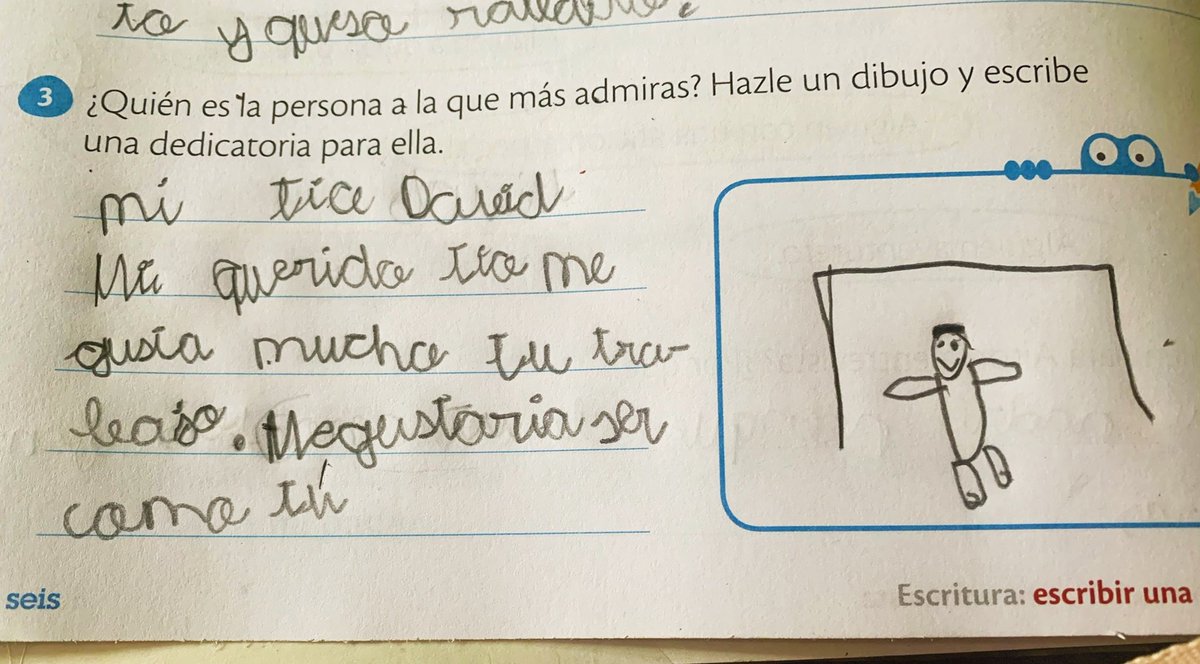 ta y queso rallado.
3 ¿Quién es la persona a la que más admiras? Hazle un dibujo y escribe
una dedicatoria para ella.
mi tio David
Mi querido tio me
gusta mucho tu tra-
beajo. Me gustaria ser
como tú
seis
Escritura: escribir una